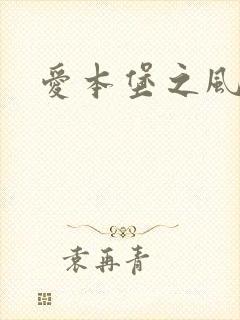 愛本堡之風
袁再青